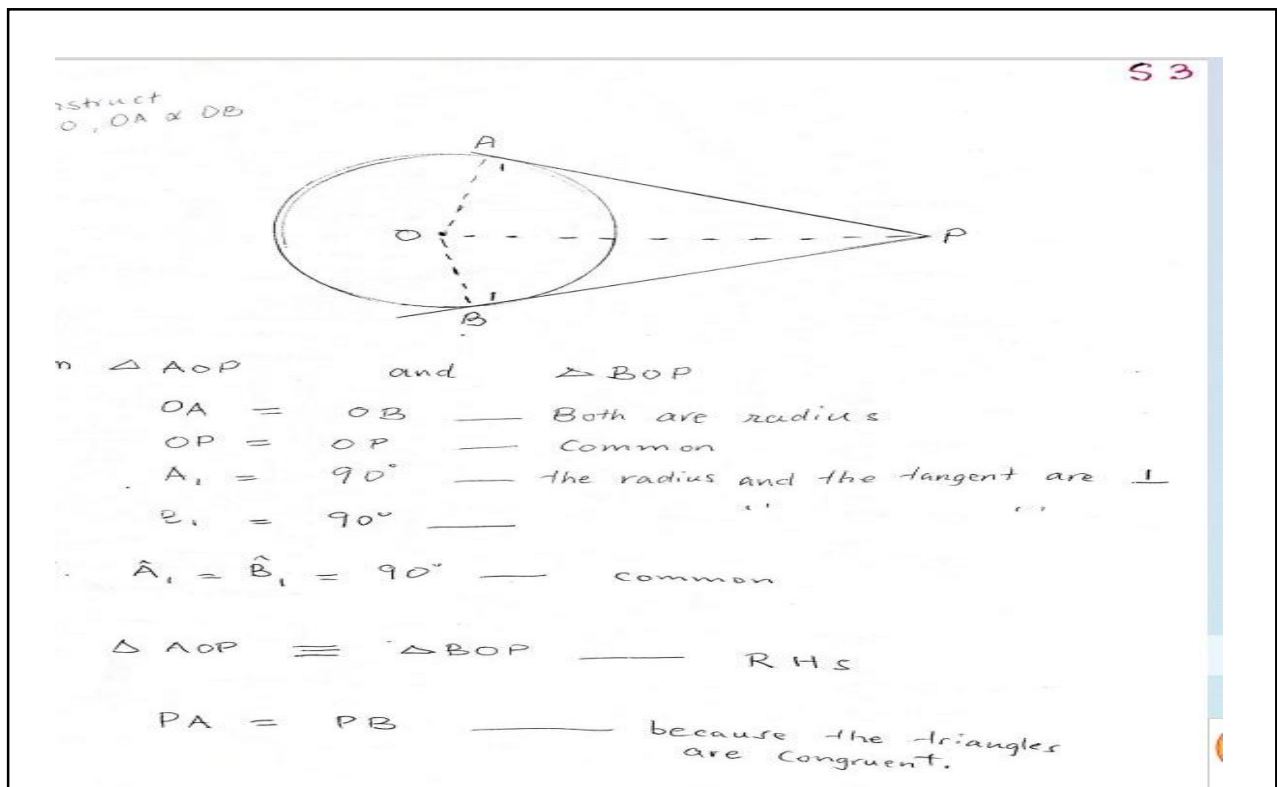 S 3
OA & OB
A
1
O
P
1
B
△ AOP and △ BOP
OA = OB — Both are radius
OP = OP — Common
A₁ = 90° — the radius and the tangent are ⊥
= 90° — " "
Â₁ = B̂₁ = 90° — common
△ AOP ≡ △ BOP — RHS
PA = PB — because the triangles
are congruent.